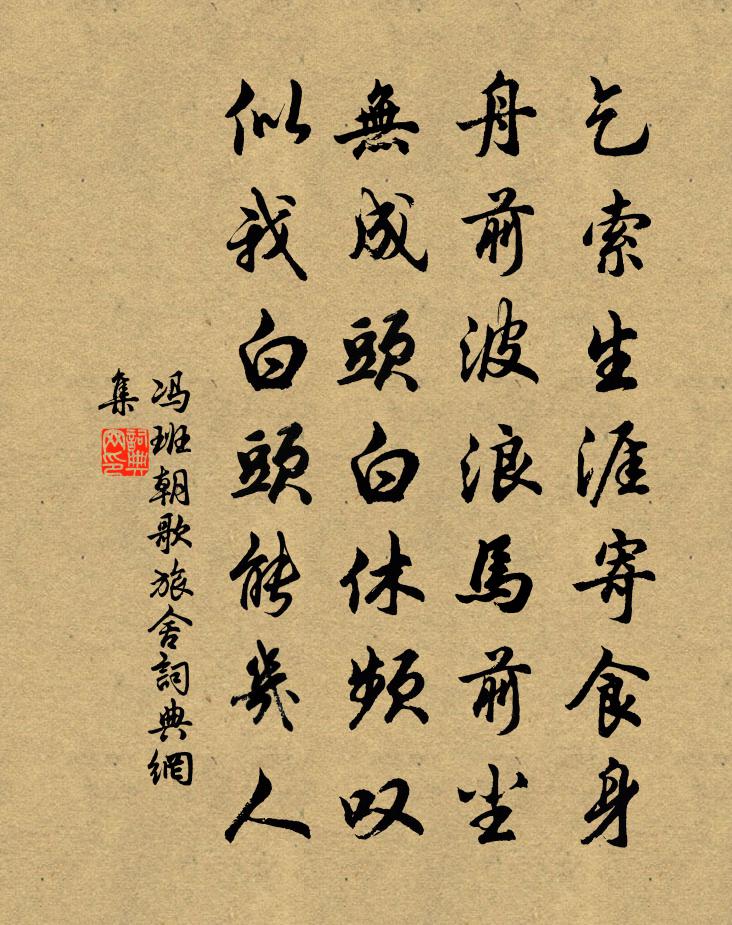 乞索生涯寄食身
舟前波浪馬前尘
無成頭白休頻叹
似我白頭能幾人
冯班朝歌旅舍詞典網
集
詞典网印